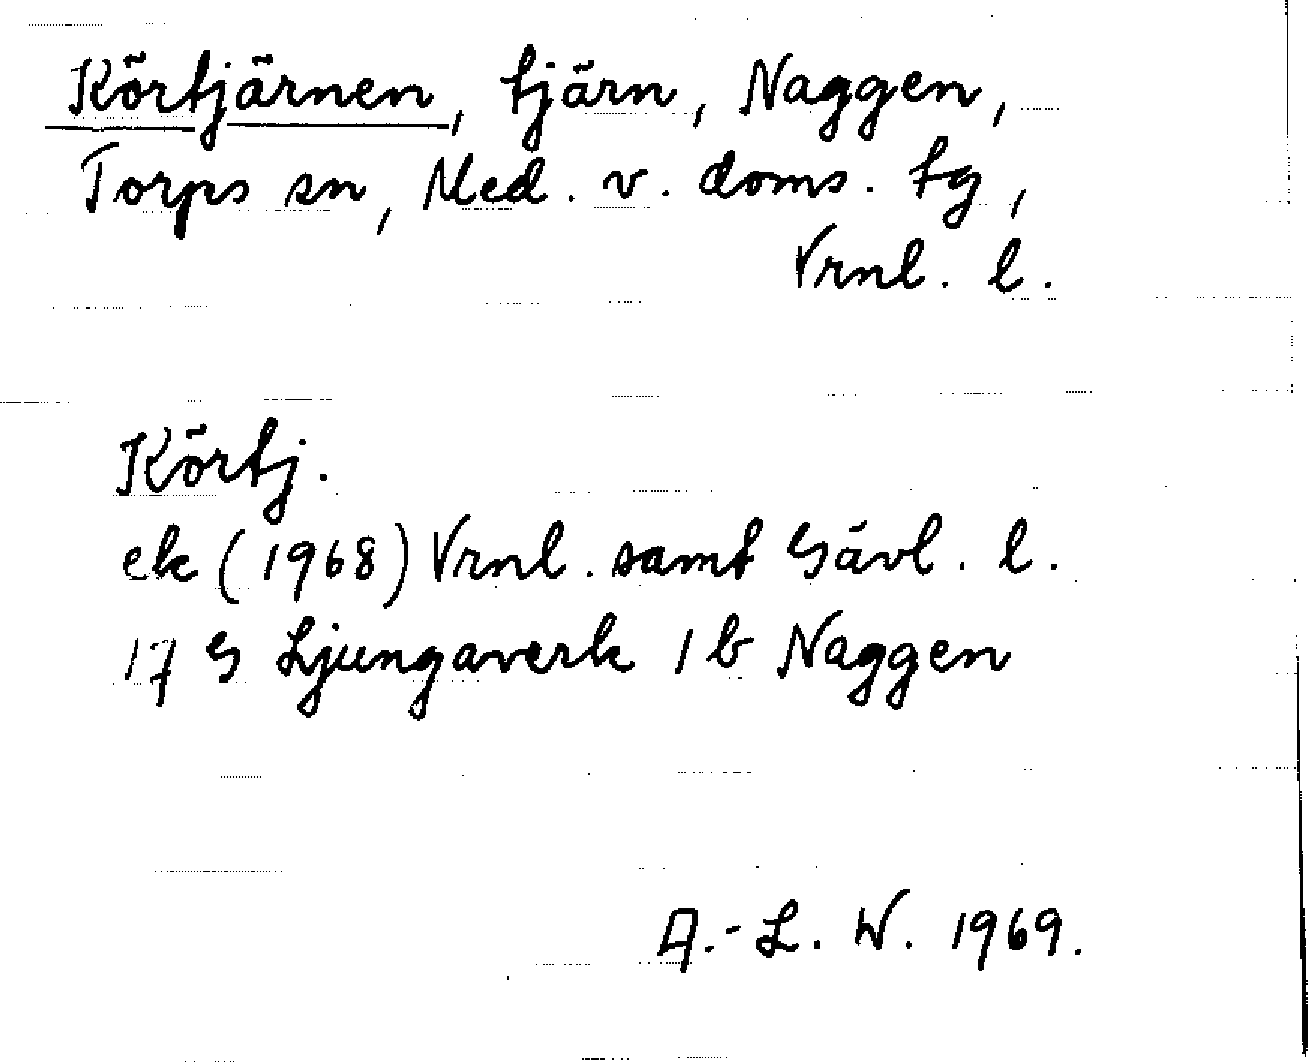 Körtjärnen, tjärn, Naggen,
Torps sn, Med. v. doms. tg,
Vrnl. l.
Körtj.
ek (1968) Vrnl. samt Gävl. l.
17 G Ljungaverk 1 b Naggen
A.-L. W. 1969.